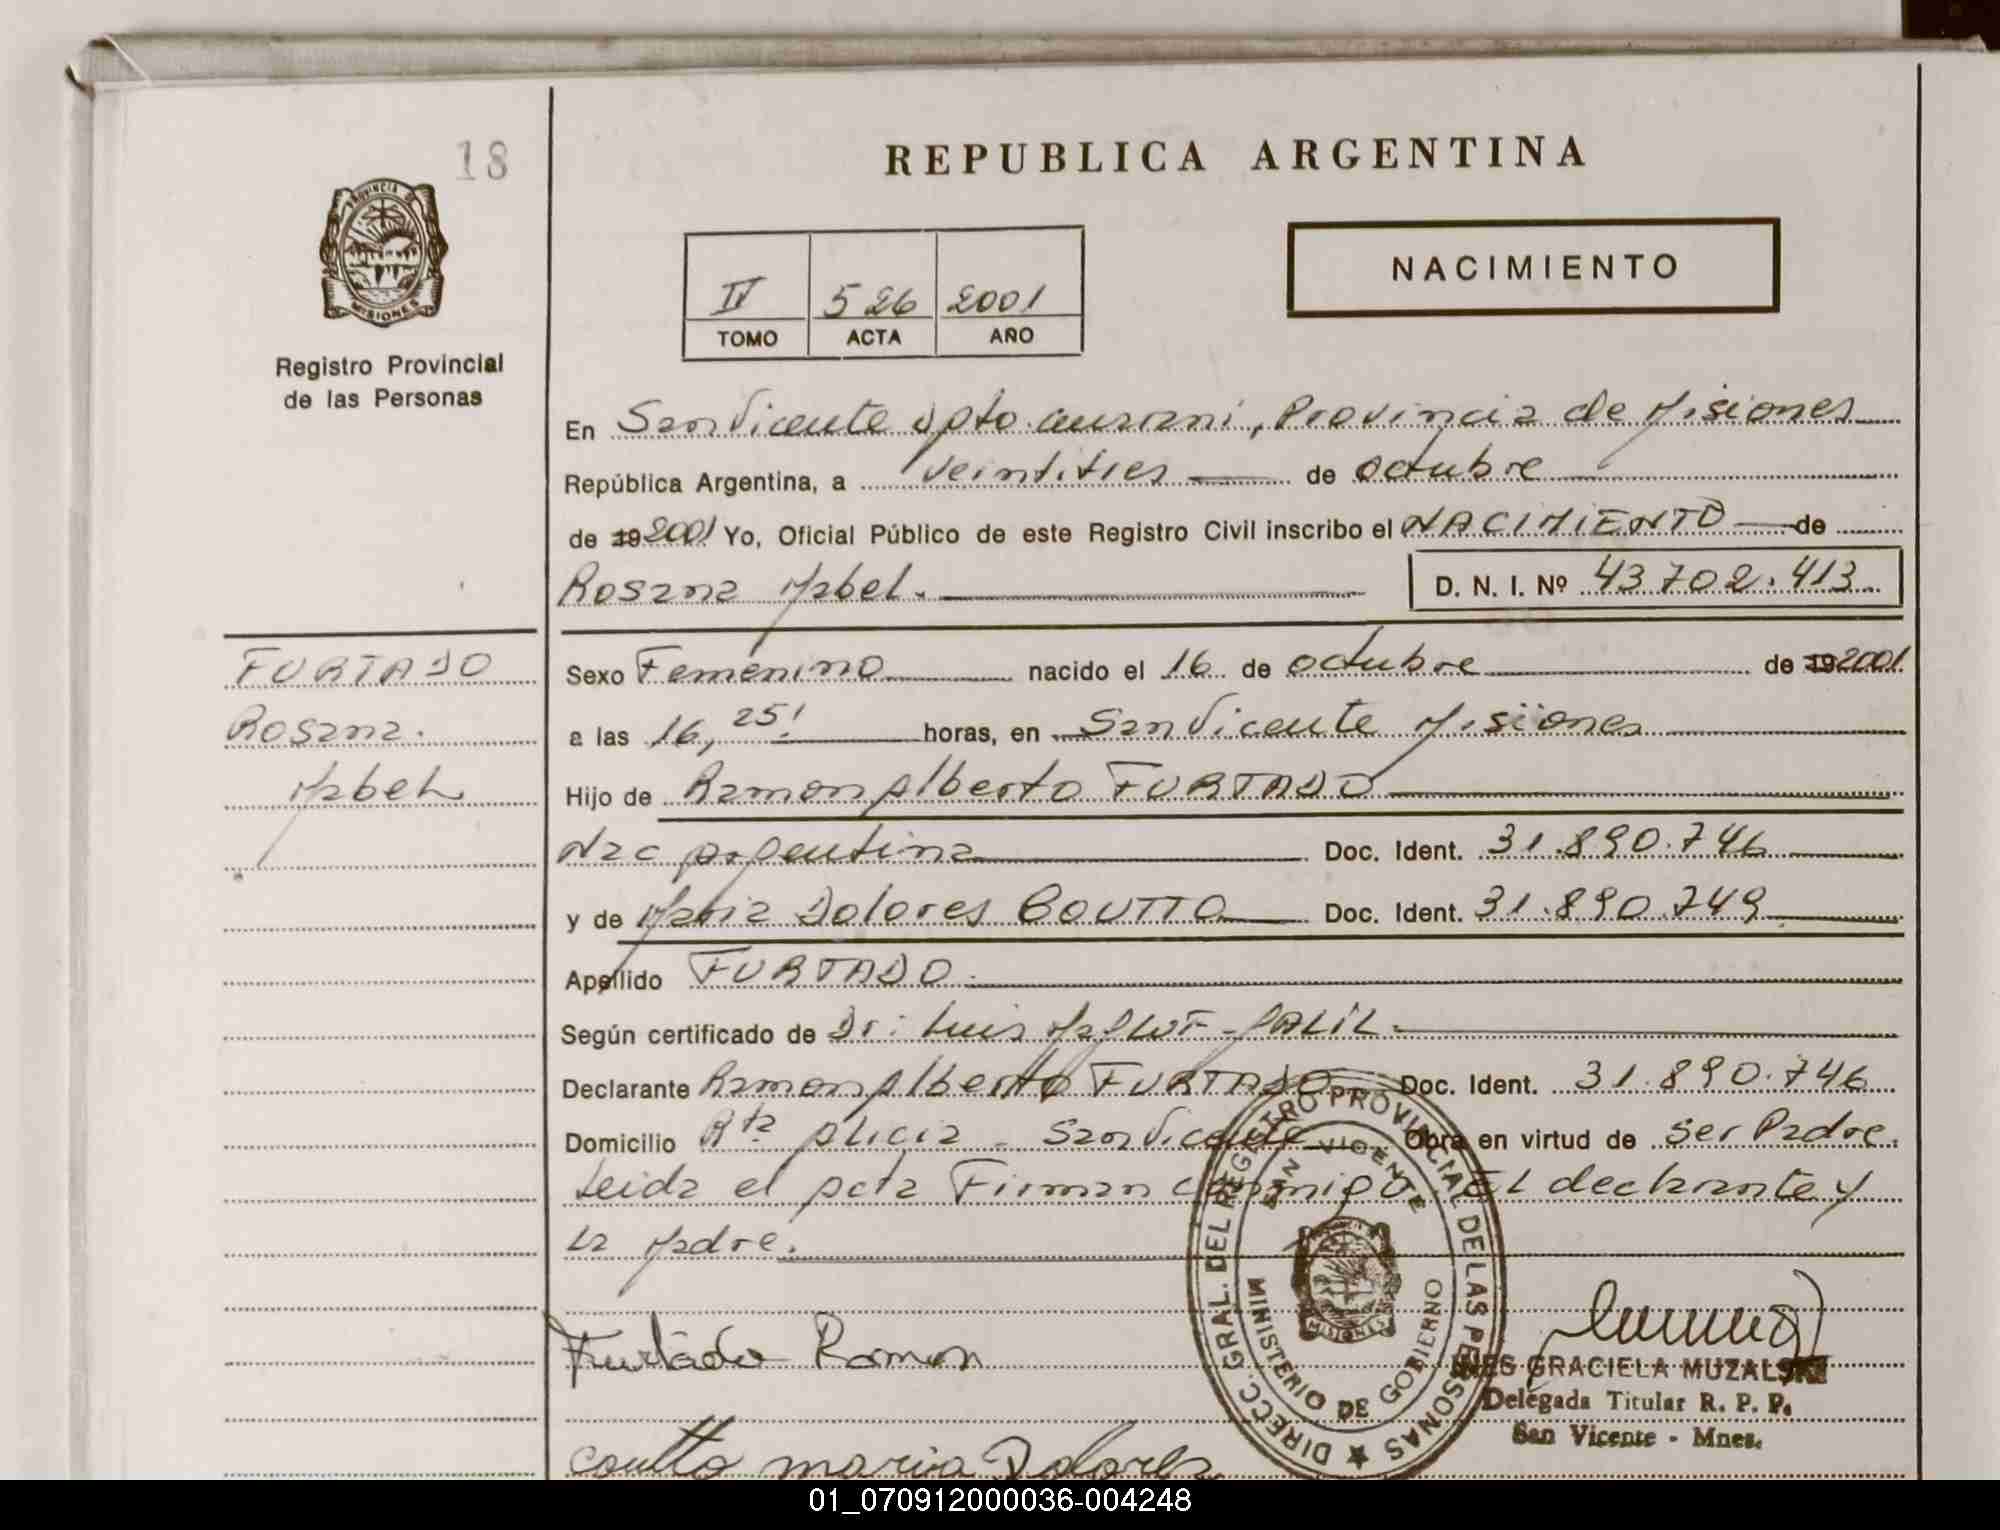 18
REPUBLICA ARGENTINA
PROVINCIA DE
MISIONES
Registro Provincial
de las Personas
IV 526 2001
TOMO ACTA AÑO
NACIMIENTO
En San Vicente Dpto. Guarani, Provincia de Misiones
República Argentina, a veintitres de octubre
de 19 2001 Yo, Oficial Público de este Registro Civil inscribo el NACIMIENTO de
Rosana Mabel. D. N. I. Nº 43.702.413
FURTADO
Rosana.
Mabel
Sexo Femenino nacido el 16 de octubre de 19 2001
a las 16,25' horas, en San Vicente Misiones
Hijo de Ramon Alberto FURTADO
Nac Argentina Doc. Ident. 31.890.746
y de Maria Dolores COUTTO Doc. Ident. 31.890.749
Apellido FURTADO.
Según certificado de Dr: Luis GALIL.
Declarante Ramon Alberto FURTADO Doc. Ident. 31.890.746
Domicilio Rta Alicia - San Vicente Obra en virtud de ser Padre.
Leida el acta Firman conmigo EL declarante y
La Madre.
DIRECC. GRAL. DEL REGISTRO PROVINCIAL DE LAS PERSONAS
SAN VICENTE
MISIONES
MINISTERIO DE GOBIERNO
Furtado Ramon
INES GRACIELA MUZALSKI
Delegada Titular R. P. P.
San Vicente - Mnes.
coutto maria Dolores
01_070912000036-004248